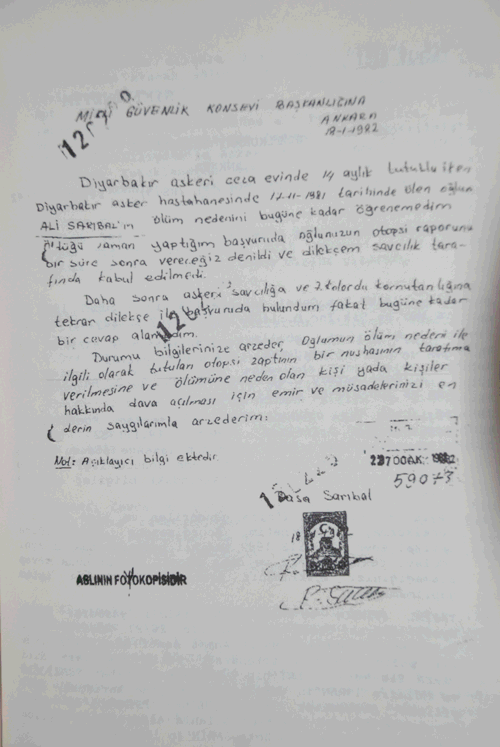 MİLLİ GÜVENLİK KONSEYİ BAŞKANLIĞINA
ANKARA
18-1-1982
Diyarbakır askeri ceza evinde 14 aylık tutuklu iken
Diyarbakır asker hastahanesinde 12-11-1981 tarihinde ölen oğlum
ALİ SARIBAL'ın ölüm nedenini bugüne kadar öğrenemedim
Öldüğü zaman yaptığım başvuruda oğlunuzun otopsi raporunu
bir süre sonra vereceğiz denildi ve dilekçem savcılık tara-
fında kabul edilmedi.
Daha sonra askeri savcılığa ve 2 kolordu komutanlığına
tekrar dilekçe ile başvuruda bulundum fakat bugüne kadar
bir cevap alamadım.
Durumu bilgilerinize arzeder, Oğlumun ölüm nedeni ile
ilgili olarak tutulan otopsi zaptının bir nushasının tarafıma
verilmesine ve ölümüne neden olan kişi yada kişiler
hakkında dava açılması için emir ve müsadelerinizi en
derin saygılarımla arzederim.
Not: Açıklayıcı bilgi ektedir.
OCAK
59073
Başa Sarıbal
ASLININ FOTOKOPİSİDİR